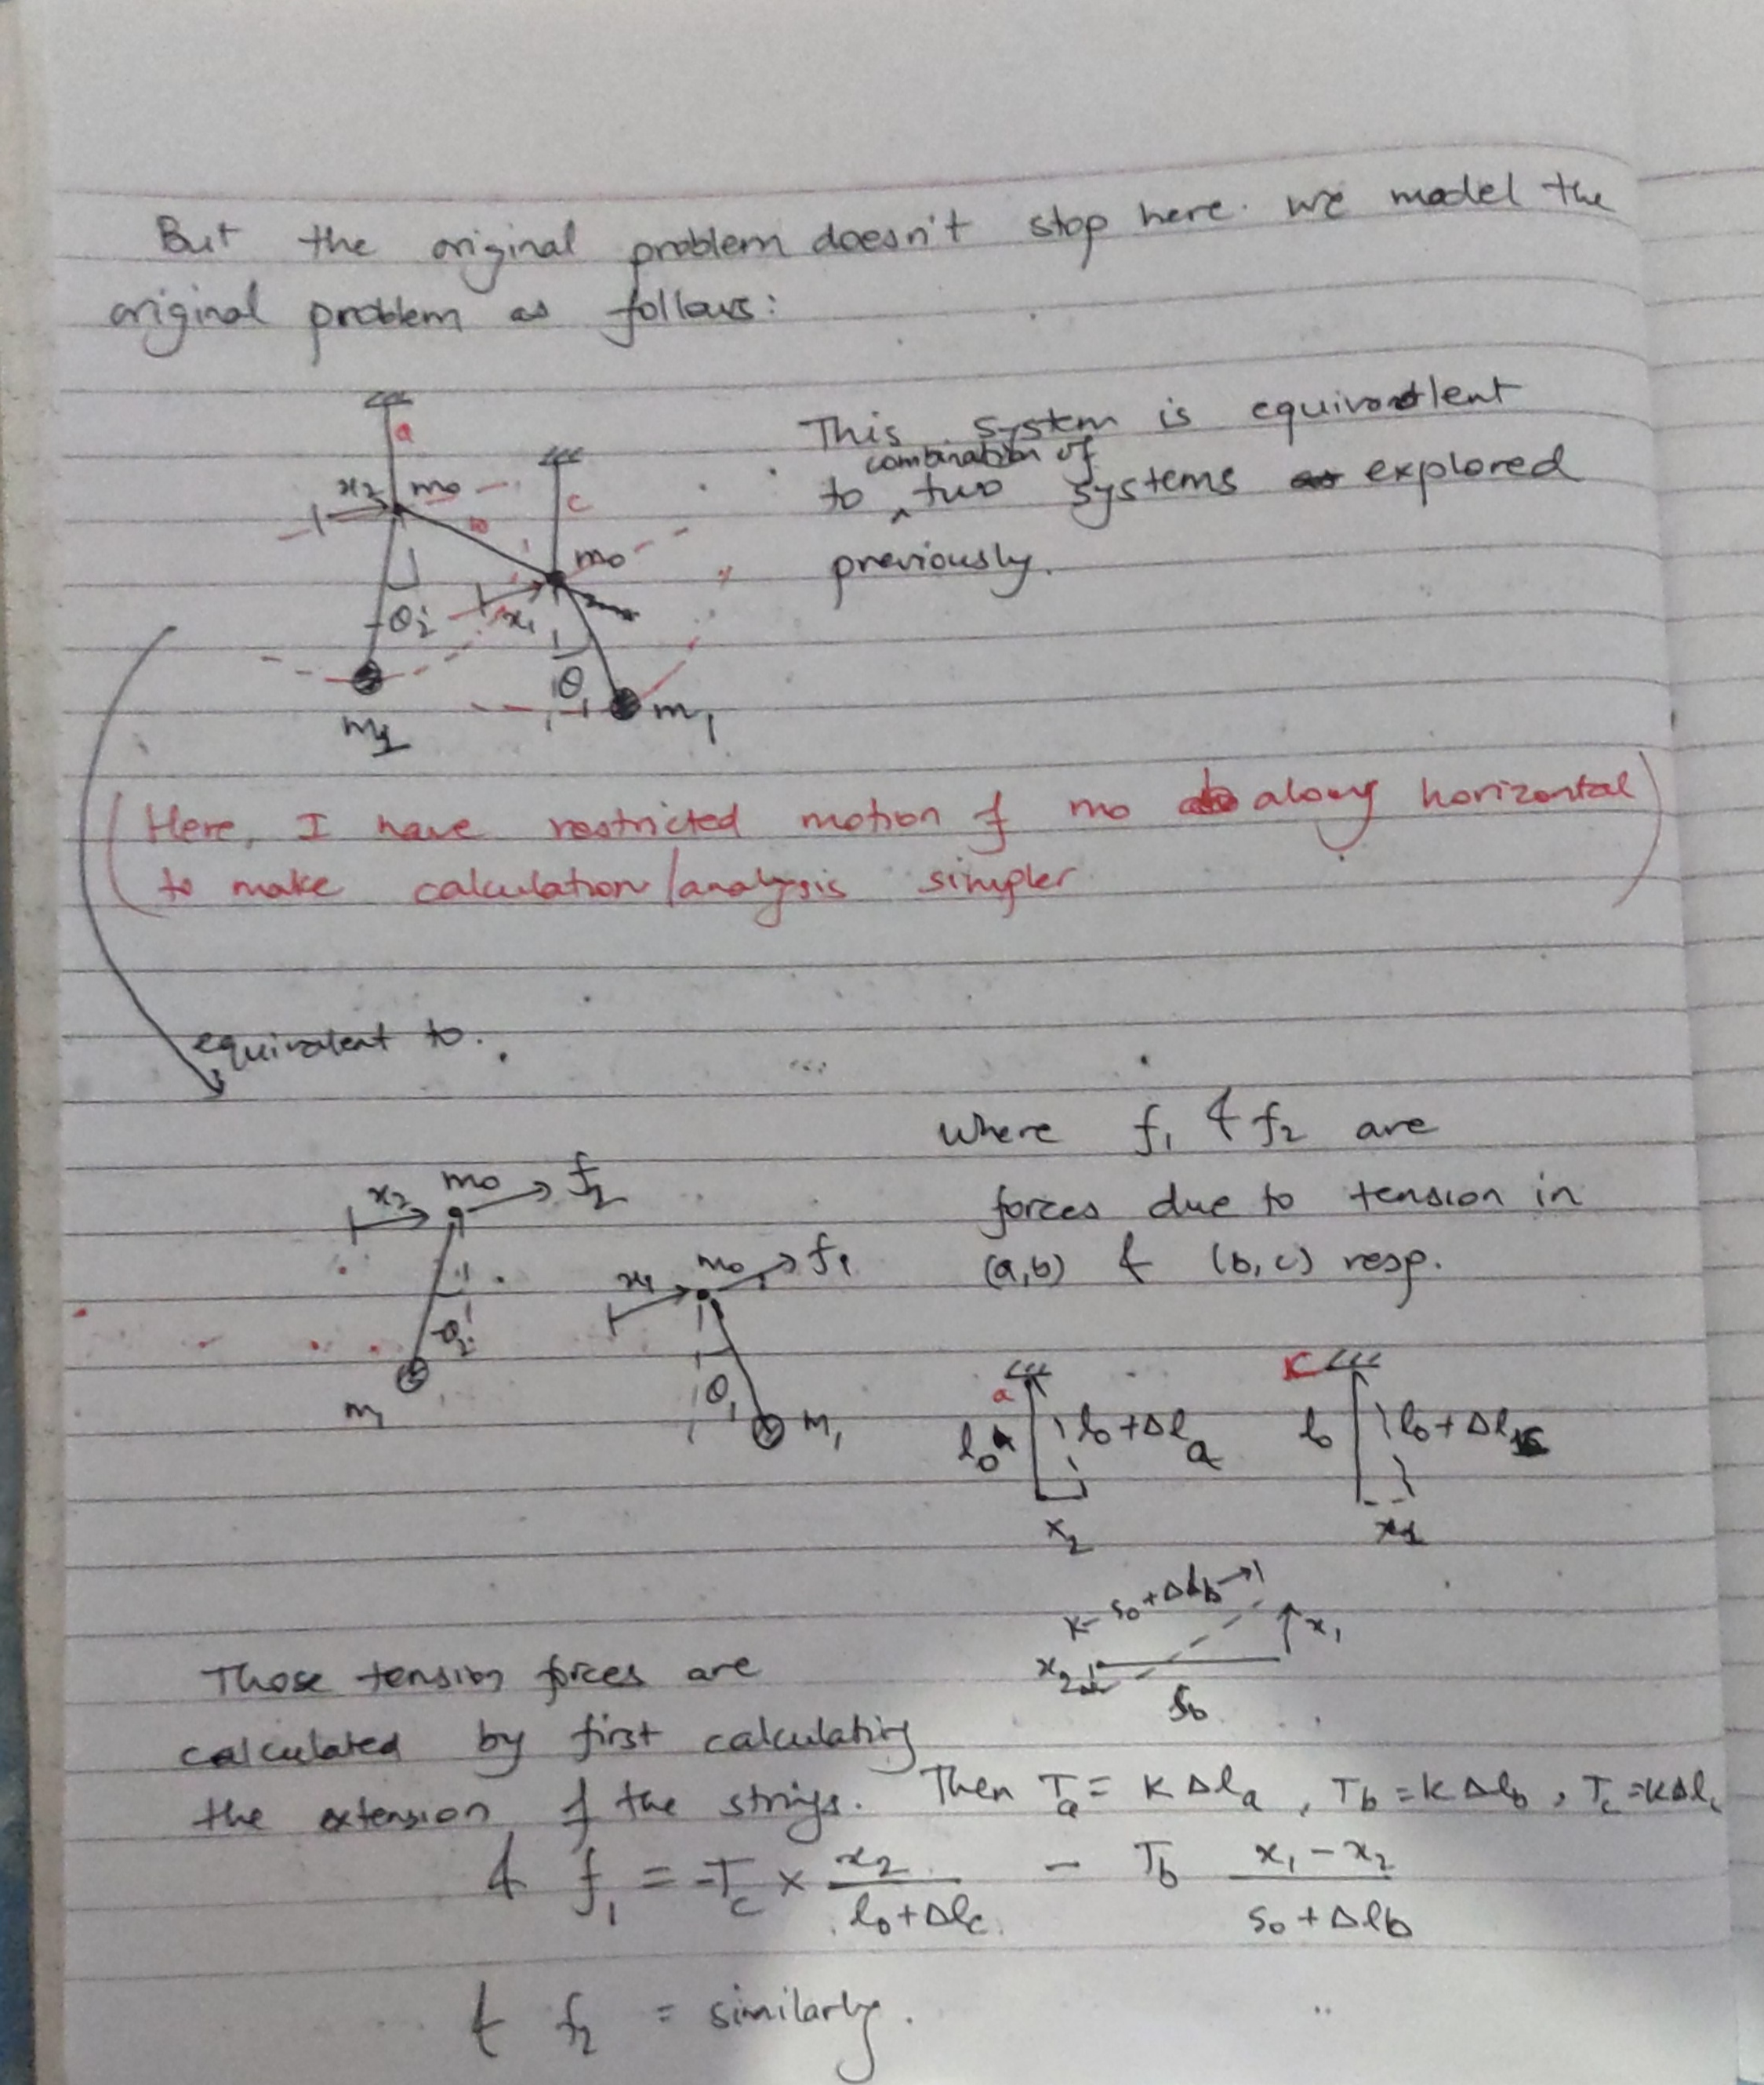 But the original problem doesn't stop here. we model the
original problem as follows:
a
x₂ m₀
b
c
m₀
θ₂
x₁
θ₁
m₁
m₁
This system is equivalent
combination of
to ^ two systems explored
previously.
(Here, I have restricted motion of m₀ along horizontal)
to make calculation/analysis simpler
equivalent to.
x₂ m₀ f₂
θ₂
m₁
x₁ m₀ f₁
θ₁
m₁
where f₁ & f₂ are
forces due to tension in
(a,b) & (b,c) resp.
a
l₀ l₀+Δlₐ
x₂
c
l₀ l₀+Δl
x₁
s₀+Δl_b
x₁
x₂
s₀
Those tension forces are
calculated by first calculating
the extension of the strings. Then Tₐ = KΔlₐ, T_b = KΔl_b, T_c = KΔl_c
& f₁ = -T_c × x₂/(l₀+Δl_c) - T_b (x₁-x₂)/(s₀+Δl_b)
& f₂ = similarly.